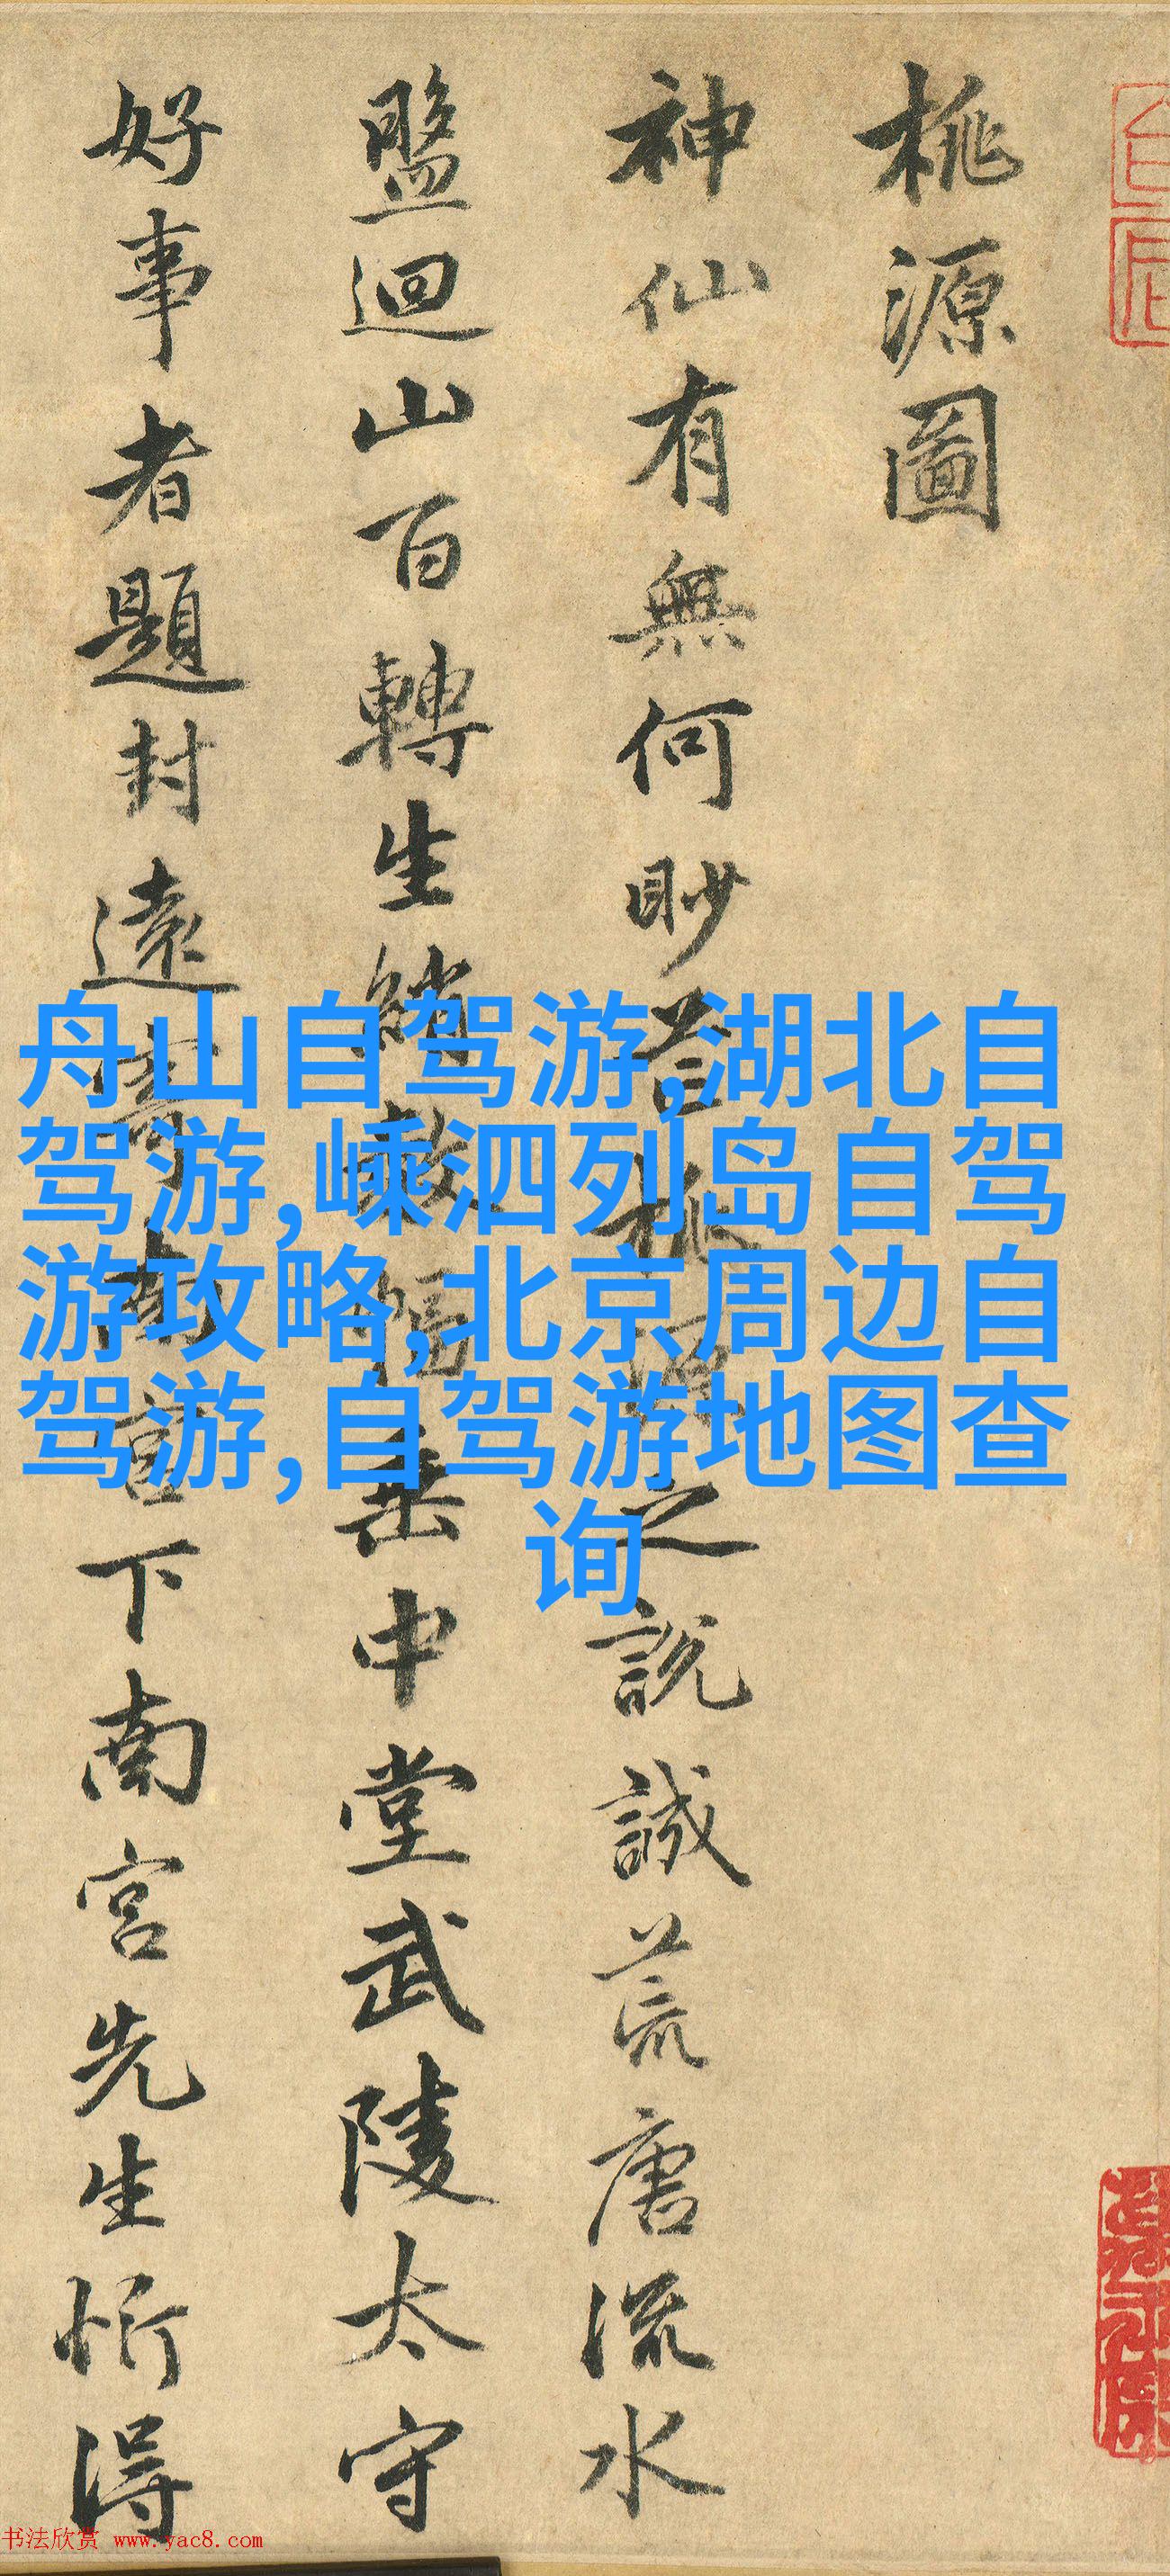 桃源圖
神仙有無何眇芒桃源之説誠荒唐流水
盤迴山百轉生綃數幅垂中堂武陵太守
好事者題封遠寄南宮下南宮先生忻得
舟山自驾游,湖北自
驾游,嵊泗列岛自驾
游攻略,北京周边自
驾游,自驾游地图查
询
书法欣赏 www.yac8.com